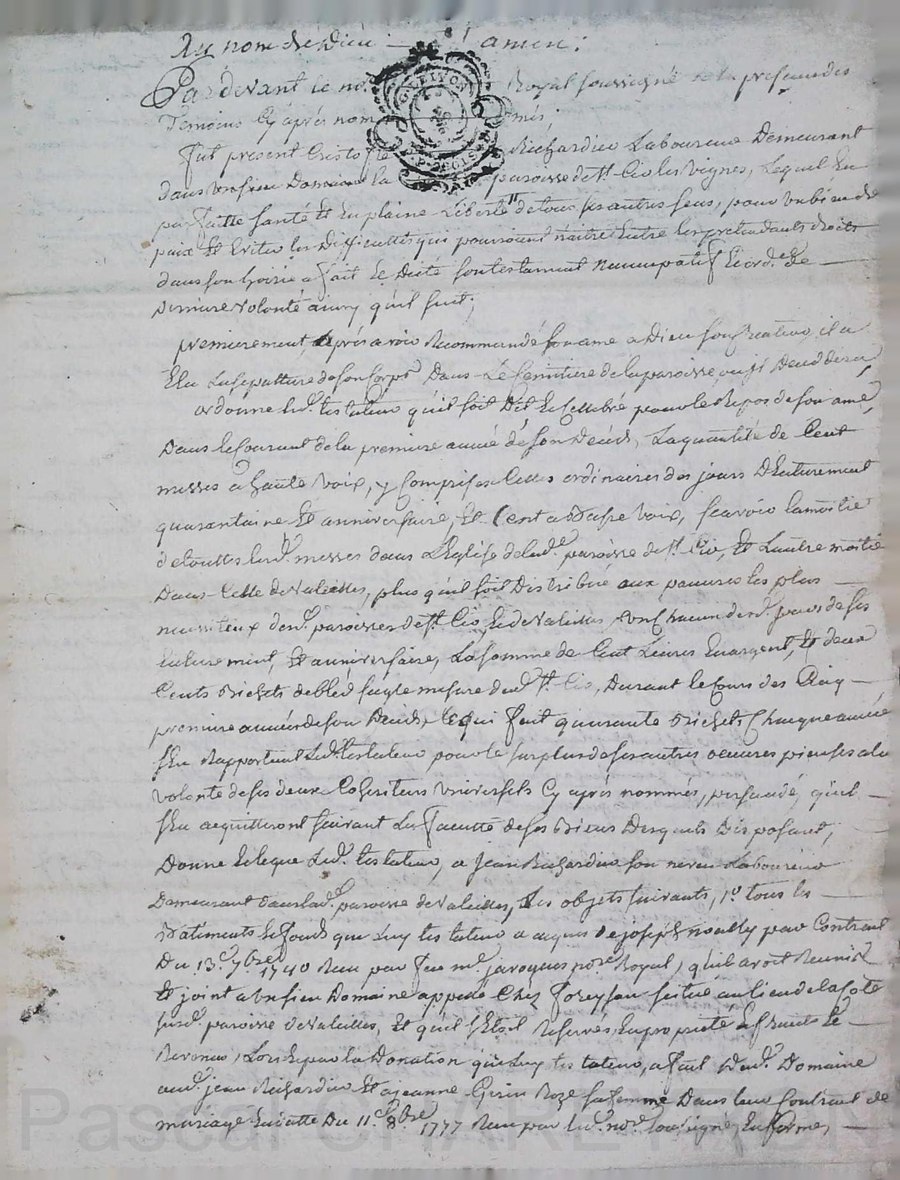 Au nom de Dieu amen :
Pardevant le no Royal soussigné en la presence des
Temoins Cy après nom més
fut present Cristofle Richardin Laboureur Demeurant
dans un sien Domaine la paroisse de St. Cio les vignes, Lequel En
parfaitte santé Et En plaine Liberté de tous ses autres sens, pour un bien de
paix Et Eviter les Difficultés qui pourroient naitre Entre les pretendants droits
dans son hoirie a fait Et Dicté son testament Nuncupatif Et ord.re de
Derniere volonté ainsy qu'il suit ;
premierement, après avoir Recommandé son ame a Dieu son Createur, il a
Elu La sepulture de son Corps Dans Le Cemitiere de la paroisse ou il Deceddera,
ordonne led. testateur qu'il soit Dit Et Cellebré pour le Repos de son ame,
Dans le Courant de la premiere année de son Decés, La quantité de Cent
messes a haute voix, y Comprises Celles ordinaires des jours D'Enterrement
quarantaine Et anniversaire, Et Cent a Basse voix, scavoir la moitié
de touttes lesd. messes dans L'Eglise de lad.e paroisse de St. Cio, Et L'autre moitié
Dans Celle de valeilles, plus qu'il soit Distribué aux pauvres les plus
necessiteux desd. paroisses de St. Cio Et de valeilles un Chacun desd. jours de ses
Enterrement, Et anniversaire, La somme de Cent Livres En argent, Et deux
Cents Bichets de bled seigle mesure dud. St. Cio, Durant le Cours des Cinq
premiere années de son Decés, Ce qui fait quarante Bichets Chaque année
s'En Rapportant Led. testateur pour le surplus de ses autres oeuvres pieuses a la
volonté de ses deux Coheritiers universels Cy après nommés, persuadé, qu'ils
s'En acquitteront suivant Les facultés de ses Biens Desquels Disposant,
Donne Et Legue Led. testateur, a Jean Richardin son neveu Laboureur
Demeurant dans lad.e paroisse de valeilles, Les objets suivants, 1.o tous les
Batiments Et fonds que Luy testateur a acquis de joseph noailly par Contrat
Du 13.e 7bre 1740 Reçu par feu me. jacques no.re Royal, qu'il avoit Reunis
Et joint a un sien Domaine appellé Chez foreysou situé au lieu de la Cote
susd.e paroisse de valeilles, Et qu'il s'Etoit Reservés En proprieté Et fruits Et
Revenus, Lors Et par la Donation que Luy testateur, a fait Dud. Domaine
aud. jean Richardin Et a jeanne Girin Roze sa femme Dans leur Contrat de
mariage En datte Du 11.e 8bre 1777 Reçu par led. no.re soussigné En forme,